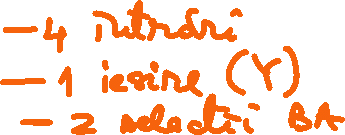 — 4 intrări
— 1 ieșire (Y)
— 2 selecții BA